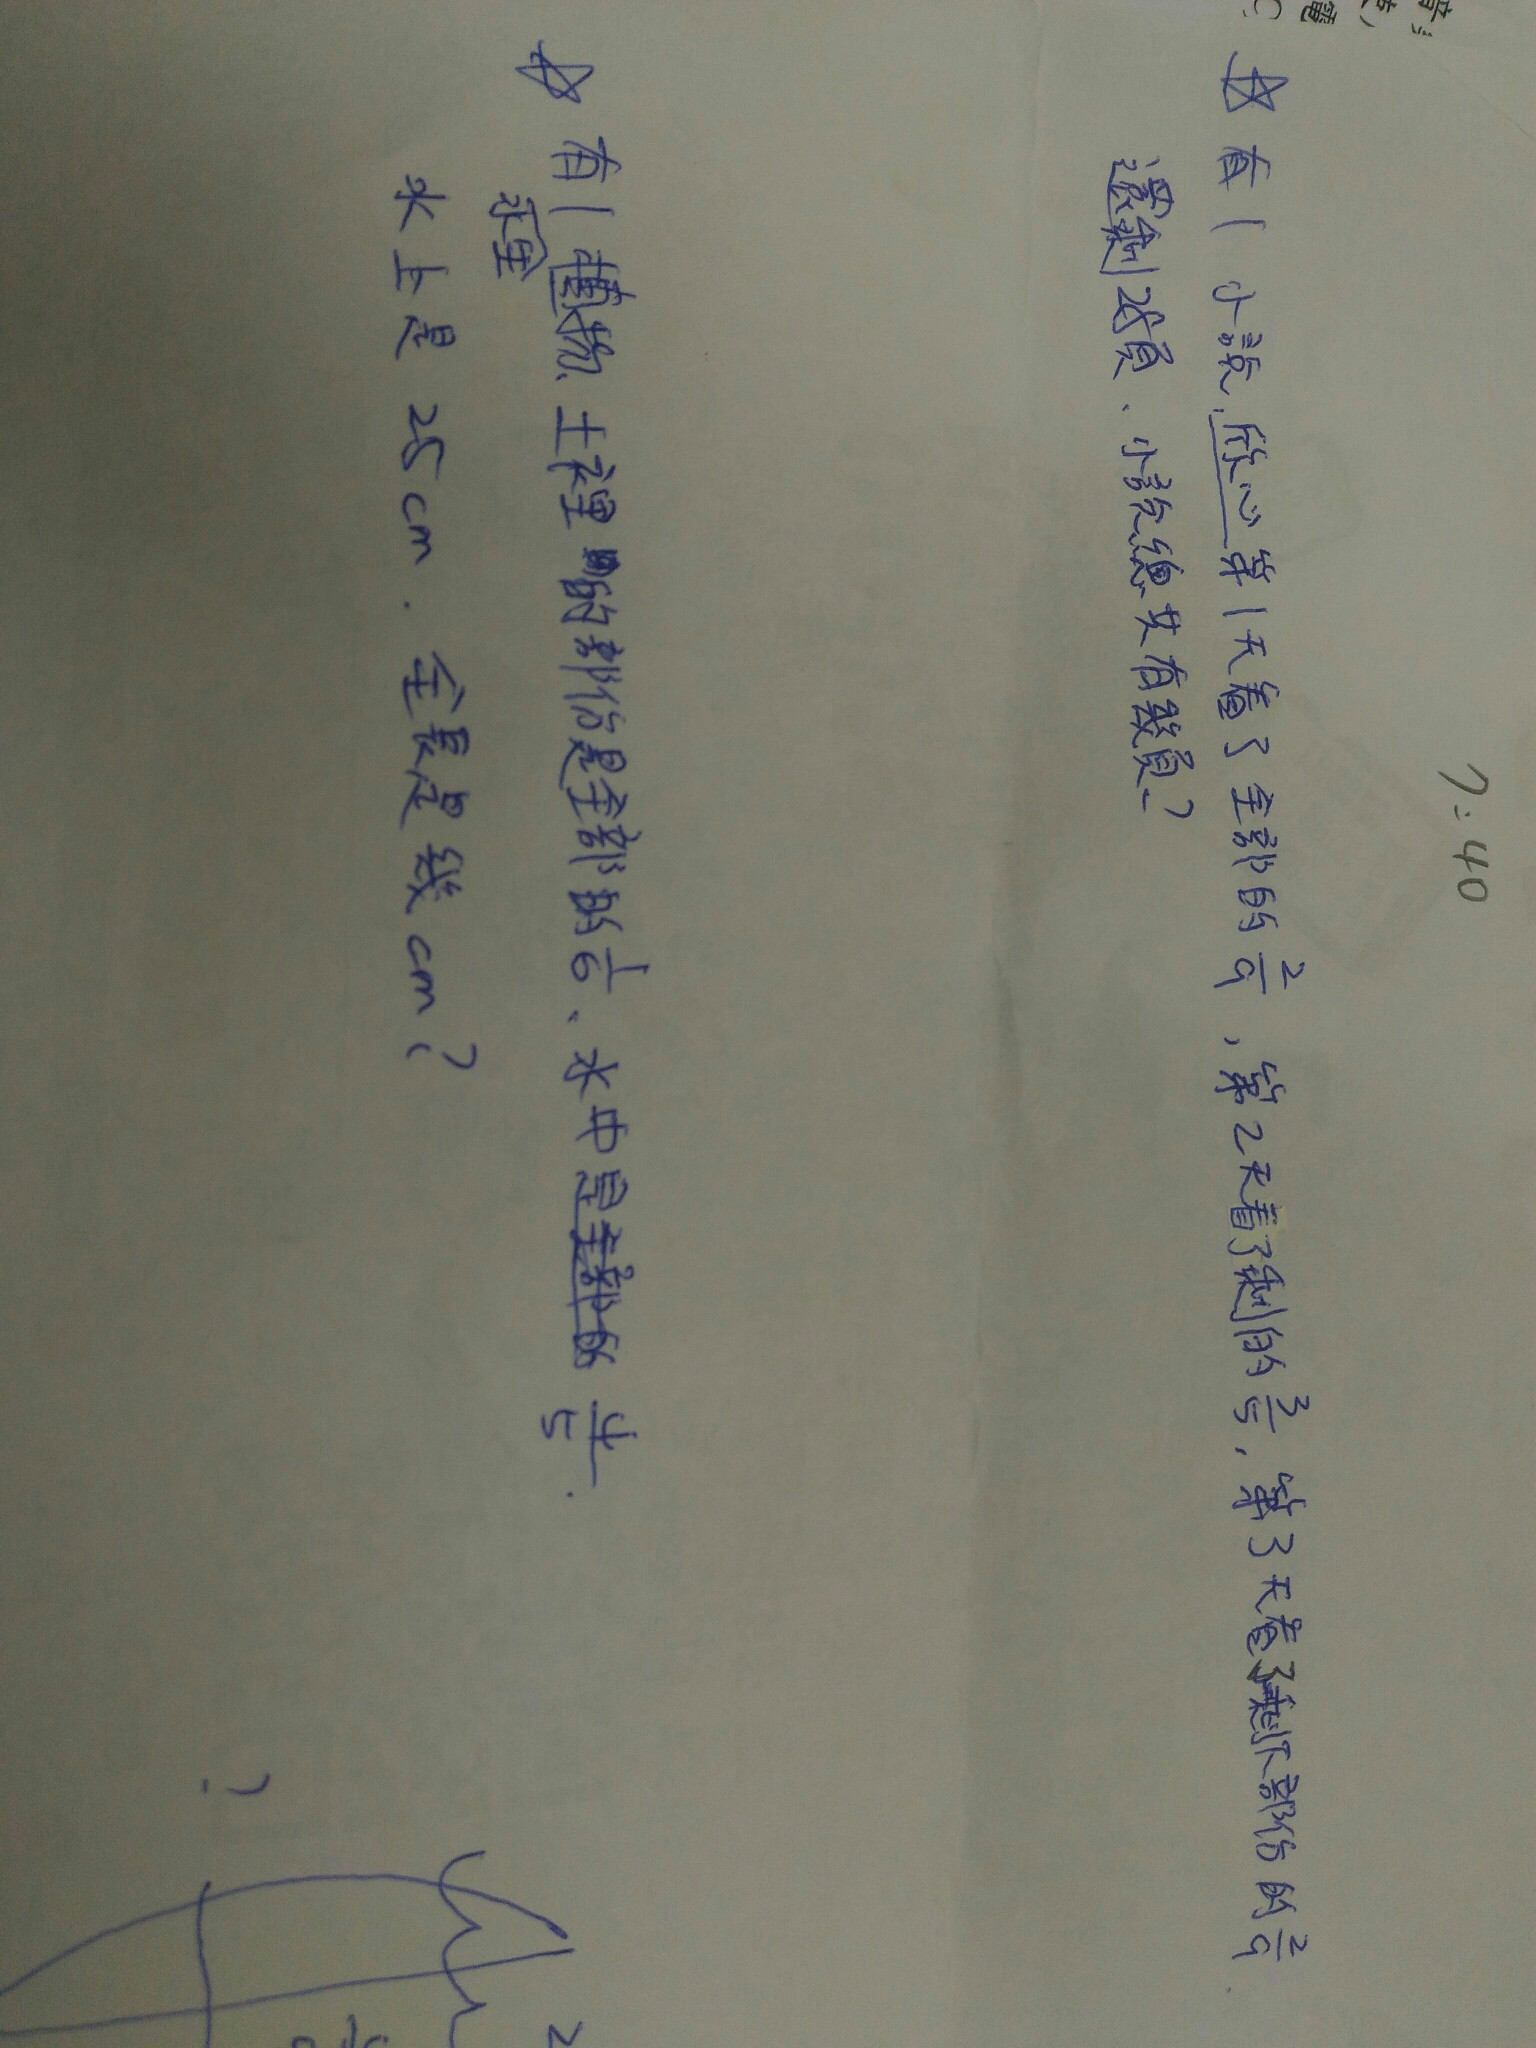 7:40
☆ 有1小說,欣心第1天看了全部的2/9,第2天看了剩的3/5,第3天看了剩下部份的2/9
還剩28頁、小說總共有幾頁?
☆ 有1植物、土裡的部份是全部的1/6、水中是全部的4/5.
水生
水上是25cm. 全長是幾cm?
?
2